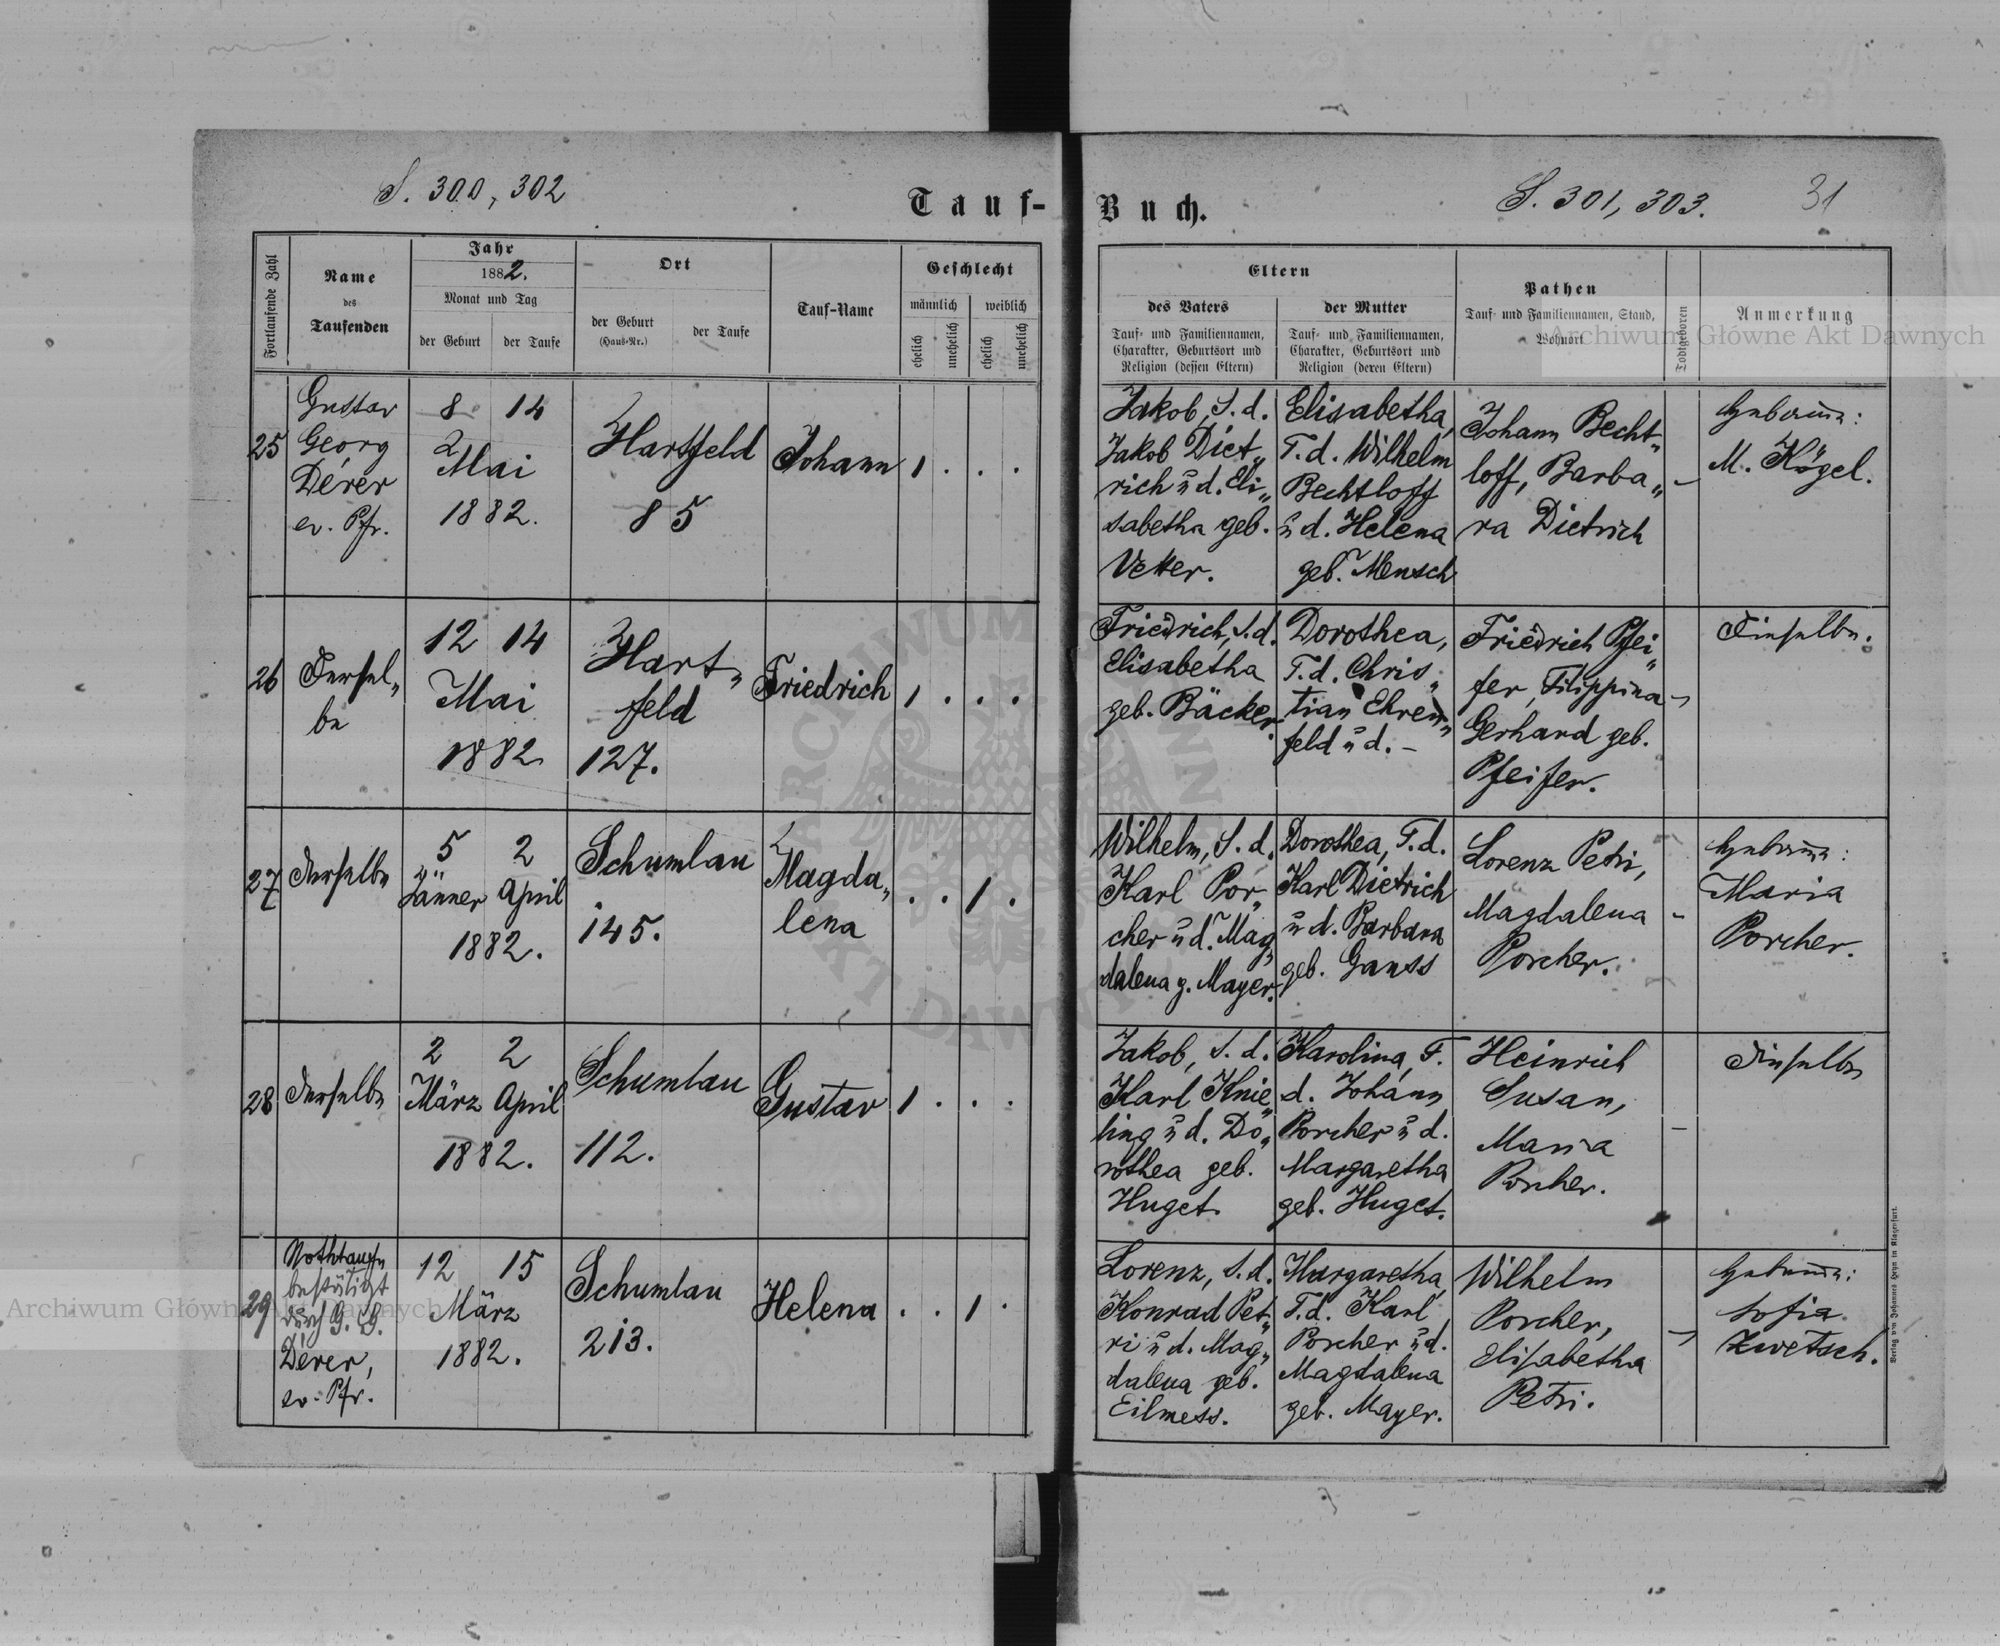 S. 300, 302
Tauf-
Buch.
S. 301, 303.
31
Fortlaufende Zahl
Name
des
Taufenden
Jahr
1882.
Monat und Tag
der Geburt
der Taufe
Ort
der Geburt
(Haus-Nr.)
der Taufe
Tauf-Name
Geschlecht
männlich
weiblich
ehelich
unehelich
ehelich
unehelich
Eltern
des Vaters
Tauf- und Familiennamen,
Charakter, Geburtsort und
Religion (dessen Eltern)
der Mutter
Tauf- und Familiennamen,
Charakter, Geburtsort und
Religion (deren Eltern)
Pathen
Tauf- und Familiennamen, Stand,
Wohnort
Todtgeboren
Anmerkung
25
Gustav
Georg
Dérer
ev. Pfr.
8 14
Mai
1882.
Hartfeld
85
Johann
1 . . .
Jakob, S. d.
Jakob Diet„
rich u d. Eli„
sabetha geb.
Vetter.
Elisabetha,
T. d. Wilhelm
Bechtloff
u d. Helena
geb. Mensch
Johann Becht„
loff, Barba„
ra Dietrich
–
Hebamme:
M. Kögel.
26
Dersel„
be
12 14
Mai
1882
Hart„
feld
127.
Friedrich
1 . . .
Friedrich, S. d.
Elisabetha
geb. Bäcker.
Dorothea,
T. d. Chris„
tian Ehren„
feld u d. –
Friedrich Pfei„
fer, Filippina
Gerhard geb.
Pfeifer.
–
Dieselbe.
27
Derselbe
5 2
Jänner April
1882.
Schumlau
145.
Magda„
lena
. . 1 .
Wilhelm, S. d.
Karl Por„
cher u d. Mag„
dalena g. Mayer.
Dorothea, T. d.
Karl Dietrich
u d. Barbara
geb. Gauss
Lorenz Petri,
Magdalena
Porcher.
–
Hebamme:
Maria
Porcher.
28
Derselbe
2 2
März April
1882.
Schumlau
112.
Gustav
1 . . .
Jakob, S. d.
Karl Knie„
ling u d. Do„
rothea geb.
Huget.
Karolina, T.
d. Johann
Porcher u d.
Margaretha
geb. Huget.
Heinrich
Susan,
Maria
Porcher.
–
Dieselbe
29
Nothtaufe
bestätigt
durch G. G.
Dérer,
ev. Pfr.
12 15
März
1882.
Schumlau
213.
Helena
. . 1 .
Lorenz, S. d.
Konrad Pet„
ri u d. Mag„
dalena geb.
Eilmess.
Margaretha,
T. d. Karl
Porcher u d.
Magdalena
geb. Mayer.
Wilhelm
Porcher,
Elisabetha
Petri.
–
Hebamme:
Sofia
Zwetsch.
Verlag von Johannes Heyn in Klagenfurt.
Archiwum Główne Akt Dawnych
Archiwum Główne Akt Dawnych
ARCHIWUM
AKT DAWNYCH